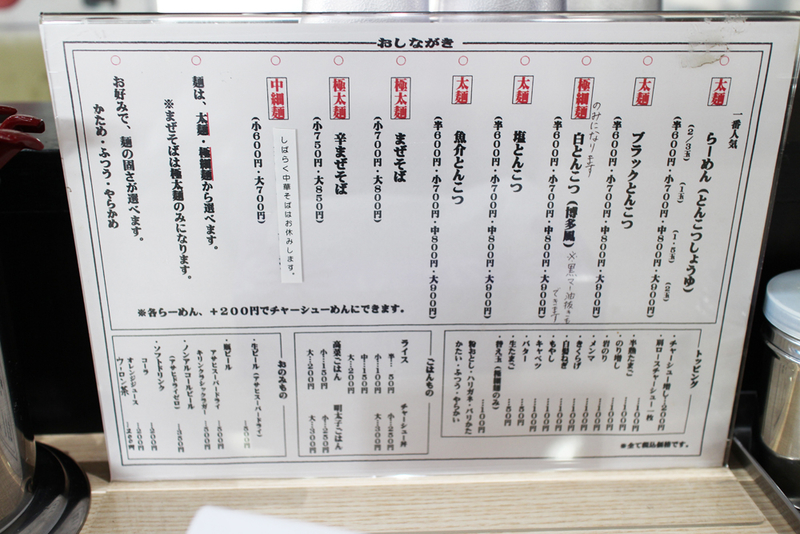 おしながき
太麺
一番人気
らーめん（とんこつしょうゆ）
(2/3玉) (1玉) (1.5玉) (2玉)
（半600円・小700円・中800円・大900円）
太麺
ブラックとんこつ
（半600円・小700円・中800円・大900円）
極細麺
のみになります
白とんこつ（博多風）
※黒マー油抜きもできます
（半600円・小700円・中800円・大900円）
太麺
塩とんこつ
（半600円・小700円・中800円・大900円）
太麺
魚介とんこつ
（半600円・小700円・中800円・大900円）
極太麺
まぜそば
（小700円・大800円）
極太麺
辛まぜそば
（小750円・大850円）
中細麺
しばらく中華そばはお休みします。
（小600円・大700円）
麺は、太麺・極細麺から選べます。
※まぜそばは極太麺のみになります。
お好みで、麺の固さが選べます。
かため・ふつう・やらかめ
※各らーめん、＋200円でチャーシューめんにできます。
トッピング
・チャーシュー増し…200円
・肩ロースチャーシュー一枚
…100円
・半熟たまご…100円
・のり増し…100円
・岩のり…100円
・メンマ…100円
・きくらげ…100円
・白髪ねぎ…100円
・もやし…100円
・キャベツ…100円
・バター…100円
・生たまご…50円
・替え玉（極細麺のみ）…100円
粉おとし・ハリガネ・バリかた
かたい・ふつう・やらかい
※全て税込価格です。
ごはんもの
ライス
半… 50円
小…100円
中…150円
大…200円
チャーシュー丼
小…250円
大…300円
高菜ごはん
小…150円
大…200円
明太子ごはん
小…250円
大…300円
おのみもの
・生ビール（アサヒスーパードライ）
…500円
・瓶ビール
アサヒスーパードライ…500円
キリンクラシックラガー…500円
・ノンアルコールビール
（アサヒドライゼロ）…350円
・ソフトドリンク
コーラ…200円
オレンジジュース…200円
ウーロン茶…200円